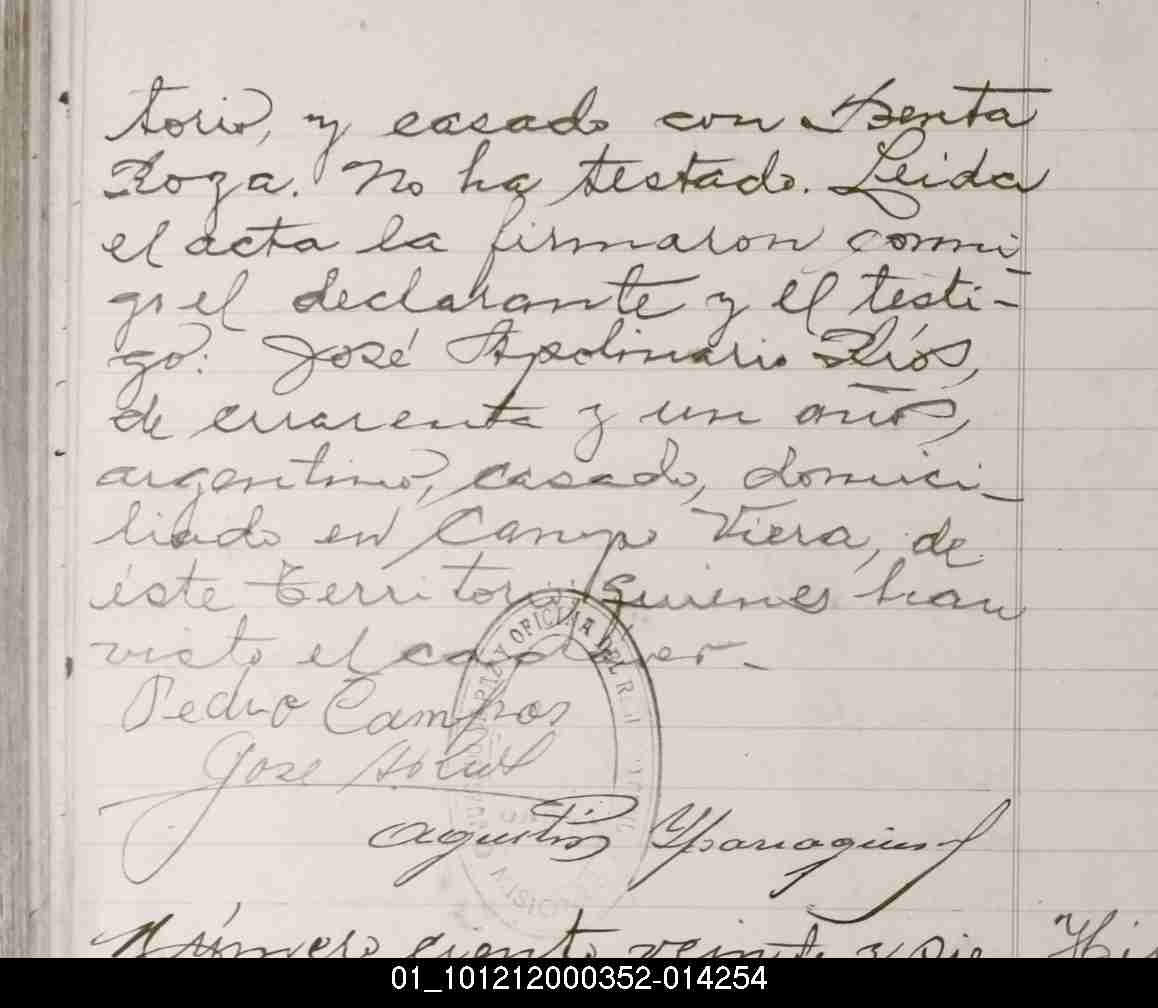 torio, y casado con Benta
Roza. No ha testado. Leida
el acta la firmaron conmi
go el declarante y el testi-
go: José Apolinario Ríos,
de cuarenta y un años,
argentino, casado, domici-
liado en Campo Viera, de
éste Territorio. Quienes han
visto el cadaver.-
Pedro Campos
Jose
Agustin
OFICINA DEL R
MISIONES
Número ciento veinte y
01_101212000352-014254